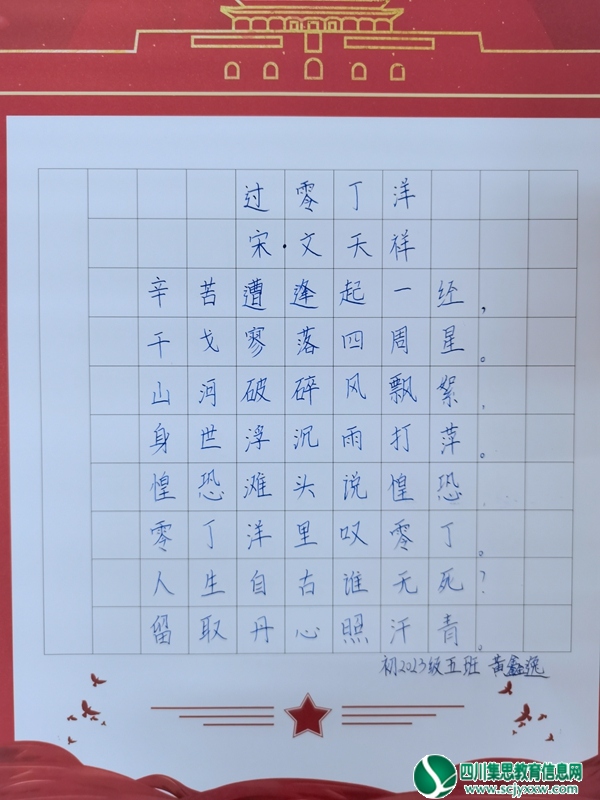 过零丁洋
宋·文天祥
辛苦遭逢起一经，
干戈寥落四周星。
山河破碎风飘絮，
身世浮沉雨打萍。
惶恐滩头说惶恐
零丁洋里叹零丁。
人生自古谁无死？
留取丹心照汗青。
初2023级五班 黄鑫逸
四川集思教育信息网
www.scjyxxw.com